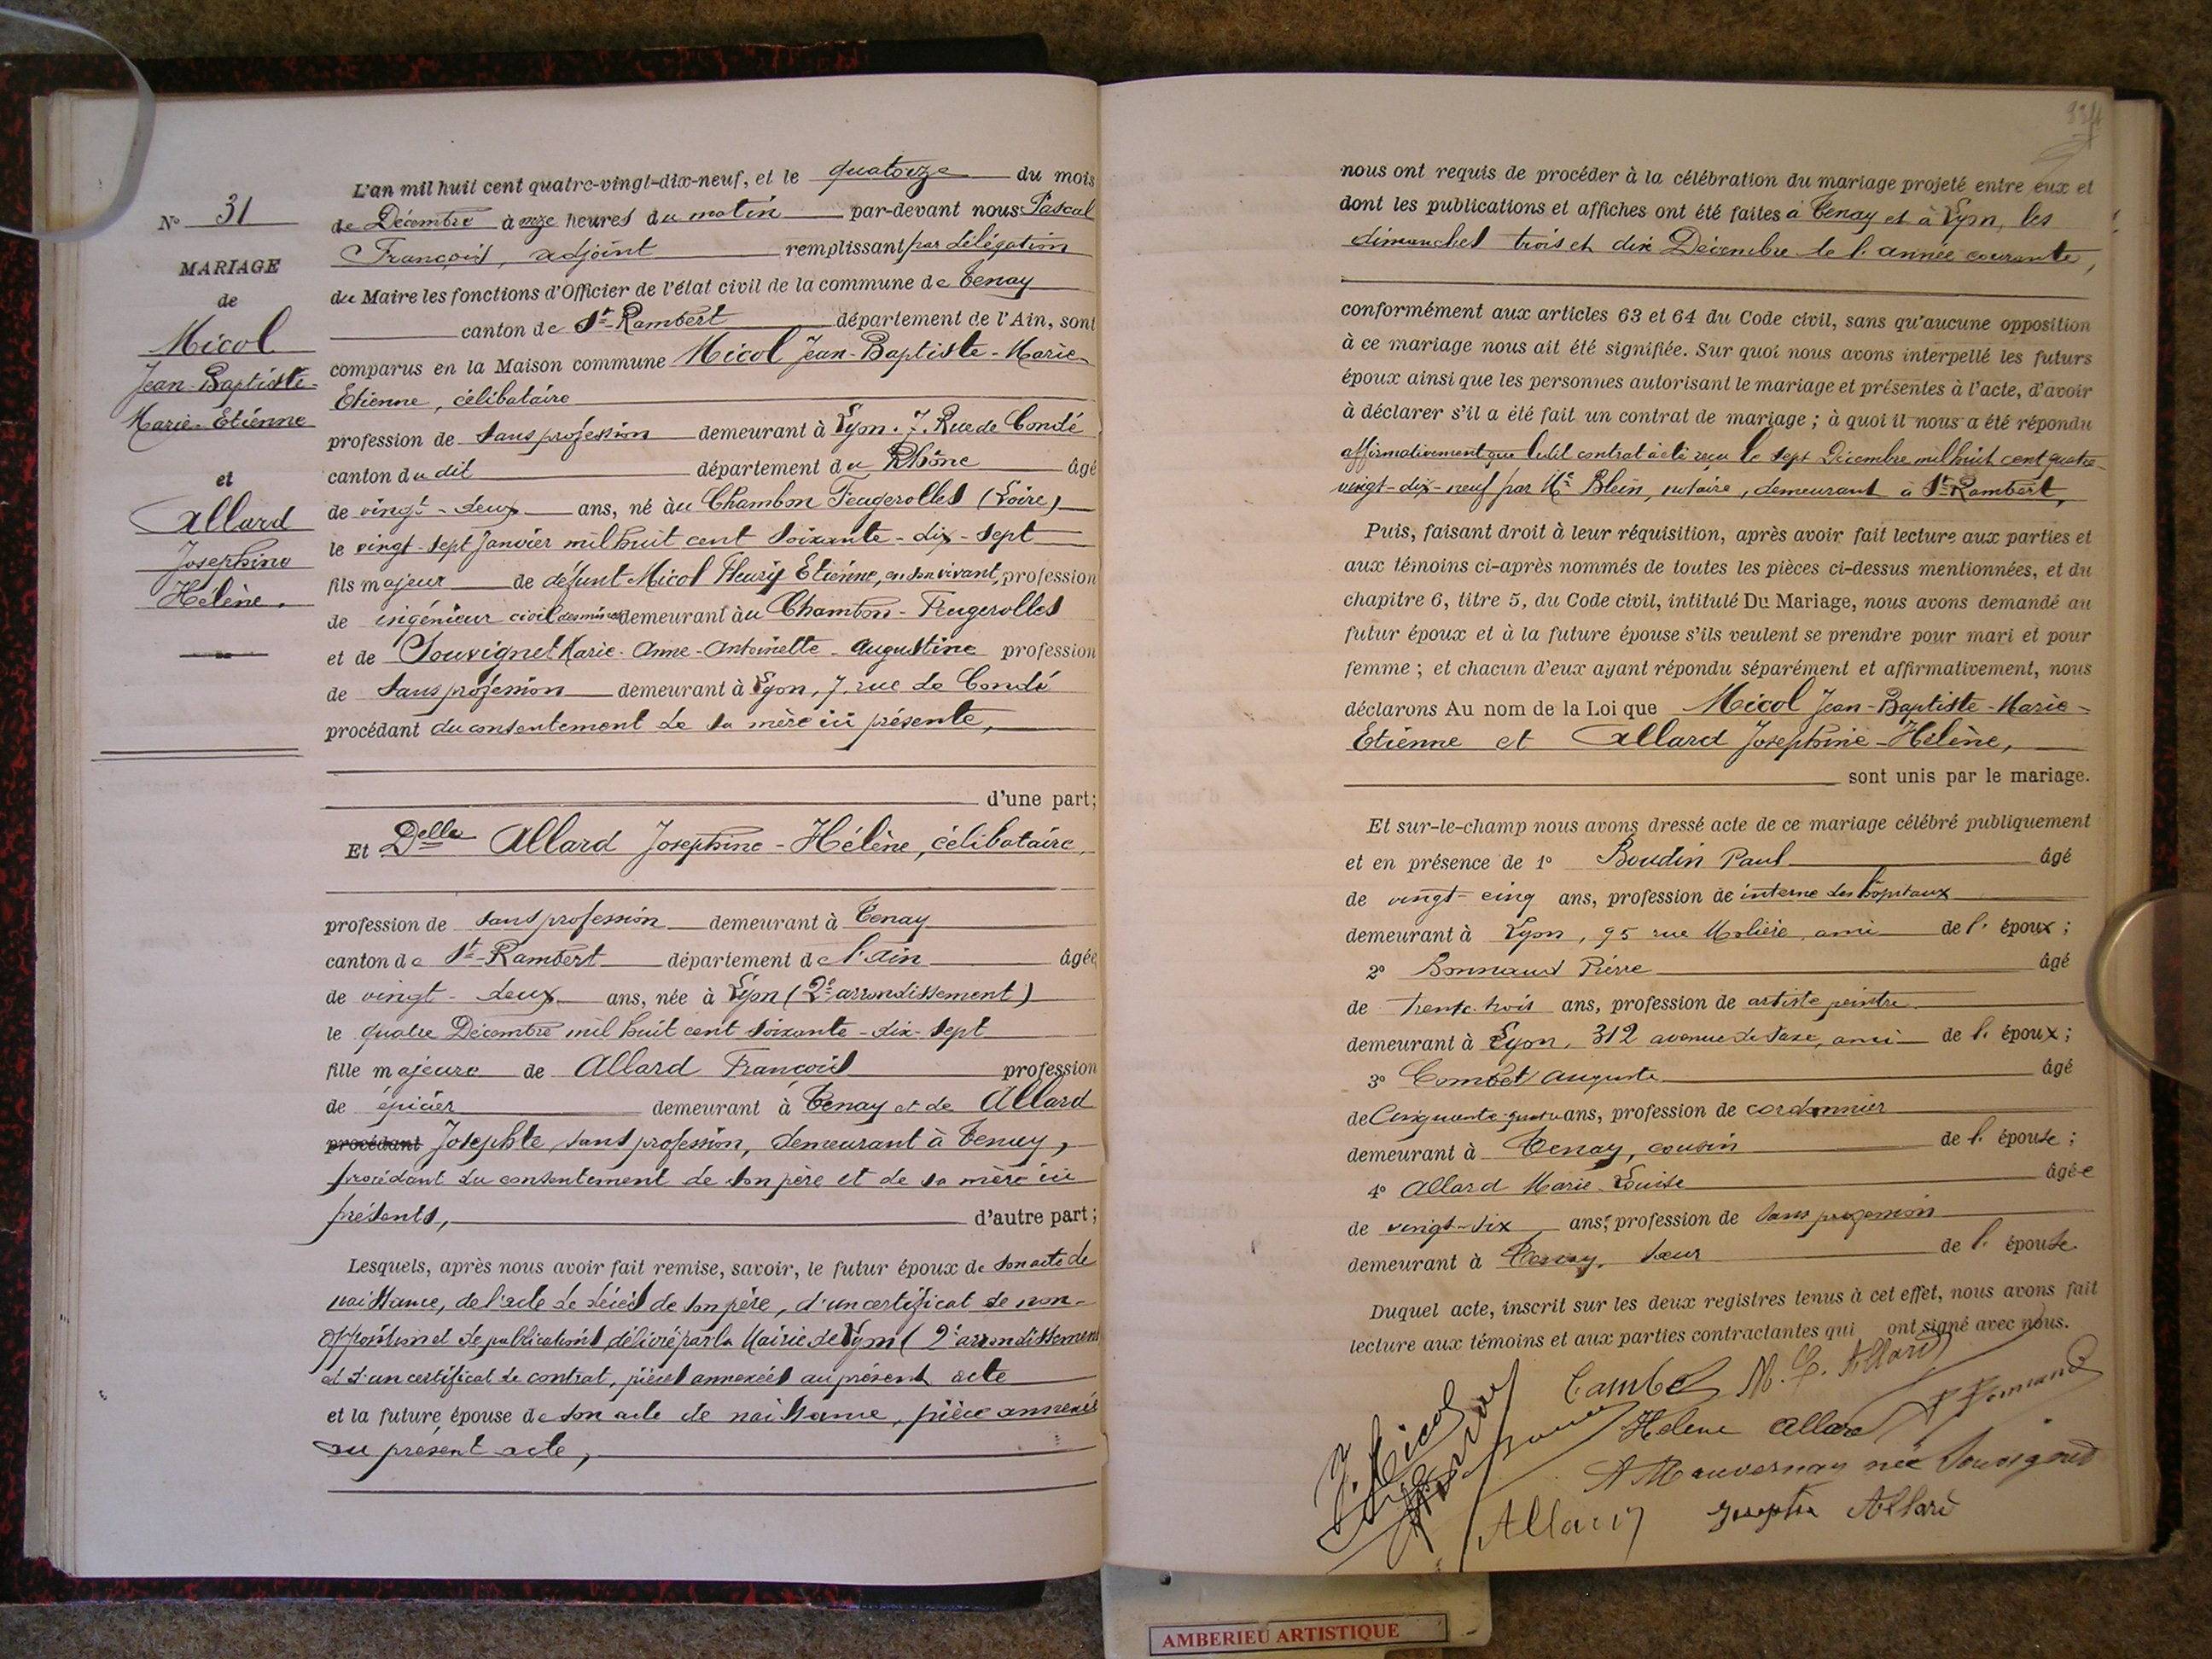 N° 31
MARIAGE
de
Micol
Jean-Baptiste-
Marie-Etienne
et
Allard
Josephine
Hélène.
L'an mil huit cent quatre-vingt-dix-neuf, et le quatorze du mois
de Décembre à onze heures du matin par-devant nous Pascal
François, adjoint remplissant par délégation
du Maire les fonctions d'Officier de l'état civil de la commune de Tenay
canton de St-Rambert département de l'Ain, sont
comparus en la Maison commune Micol Jean-Baptiste-Marie-
Etienne, célibataire
profession de sans profession demeurant à Lyon. 7. Rue de Condé
canton du dit département du Rhône âgé
de vingt-deux ans, né au Chambon Feugerolles (Loire)
le vingt-sept Janvier mil huit cent soixante-dix-sept
fils majeur de défunt Micol Fleury Etienne, en son vivant, profession
de ingénieur civil des mines demeurant au Chambon-Feugerolles
et de Souvignet Marie-Anne-Antoinette-Augustine profession
de sans profession demeurant à Lyon, 7. rue de Condé
procédant du consentement de sa mère ici présente,
d'une part;
Et Delle Allard Josephine-Hélène, célibataire,
profession de sans profession demeurant à Tenay
canton de St-Rambert département de l'Ain âgée
de vingt-deux ans, née à Lyon (2e arrondissement)
le quatre Décembre mil huit cent soixante-dix-sept
fille majeure de Allard François profession
de épicier demeurant à Tenay et de Allard
procédant Josephte, sans profession, demeurant à Tenay,
procédant du consentement de son père et de sa mère ici
présents, d'autre part;
Lesquels, après nous avoir fait remise, savoir, le futur époux de son acte de
naissance, de l'acte de décès de son père, d'un certificat de non-
opposition et de publications délivré par la Mairie de Lyon (2e arrondissement
et d'un certificat de contrat, pièces annexées au présent acte
et la future épouse de son acte de naissance, pièce annexée
au présent acte,
334
nous ont requis de procéder à la célébration du mariage projeté entre eux et
dont les publications et affiches ont été faites à Tenay et à Lyon, les
dimanches trois et dix Décembre de l'année courante,
conformément aux articles 63 et 64 du Code civil, sans qu'aucune opposition
à ce mariage nous ait été signifiée. Sur quoi nous avons interpellé les futurs
époux ainsi que les personnes autorisant le mariage et présentes à l'acte, d'avoir
à déclarer s'il a été fait un contrat de mariage ; à quoi il nous a été répondu
affirmativement que ledit contrat a été reçu le sept Décembre mil huit cent quatre-
vingt-dix-neuf par Me Blein, notaire, demeurant à St-Rambert,
Puis, faisant droit à leur réquisition, après avoir fait lecture aux parties et
aux témoins ci-après nommés de toutes les pièces ci-dessus mentionnées, et du
chapitre 6, titre 5, du Code civil, intitulé Du Mariage, nous avons demandé au
futur époux et à la future épouse s'ils veulent se prendre pour mari et pour
femme ; et chacun d'eux ayant répondu séparément et affirmativement, nous
déclarons Au nom de la Loi que Micol Jean-Baptiste-Marie-
Etienne et Allard Josephine-Hélène,
sont unis par le mariage.
Et sur-le-champ nous avons dressé acte de ce mariage célébré publiquement
et en présence de 1° Boudin Paul âgé
de vingt-cinq ans, profession de interne des hôpitaux
demeurant à Lyon, 95 rue Molière, ami de l'époux ;
2° Bonnaud Pierre âgé
de trente-trois ans, profession de artiste peintre
demeurant à Lyon, 312 avenue de Saxe, ami de l'époux ;
3° Combet Auguste âgé
de Cinquante-quatre ans, profession de cordonnier
demeurant à Tenay, cousin de l'épouse ;
4° Allard Marie-Louise âgée
de vingt-six ans, profession de sans profession
demeurant à Tenay, sœur de l'épouse
Duquel acte, inscrit sur les deux registres tenus à cet effet, nous avons fait
lecture aux témoins et aux parties contractantes qui ont signé avec nous.
Combet M. L. Allard
Micol
Helene Allard
A Mauvernay née Souvignet
Allard Josephte Allard
AMBERIEU ARTISTIQUE